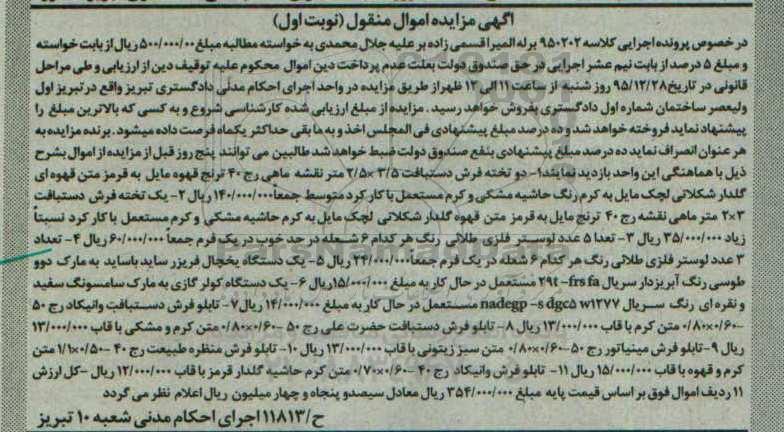 آگهی مزایده اموال منقول (نوبت اول)
در خصوص پرونده اجرایی کلاسه ۹۵۰۲۰۲ برله المیرا قسمی زاده بر علیه جلال محمدی به خواسته مطالبه مبلغ ۵۰۰/۰۰۰/۰۰ ریال از بابت خواسته
و مبلغ ۵ درصد از بابت نیم عشر اجرایی در حق صندوق دولت بعلت عدم پرداخت دین اموال محکوم علیه توقیف دین از ارزیابی و طی مراحل
قانونی در تاریخ ۹۵/۱۲/۲۸ روز شنبه از ساعت ۱۱ الی ۱۲ ظهر از طریق مزایده در واحد اجرای احکام مدنی دادگستری تبریز واقع در تبریز اول
ولیعصر ساختمان شماره اول دادگستری بفروش خواهد رسید. مزایده از مبلغ ارزیابی شده کارشناسی شروع و به کسی که بالاترین مبلغ را
پیشنهاد نماید فروخته خواهد شد و ده درصد مبلغ پیشنهادی فی المجلس اخذ و به ما بقی حداکثر یکماه فرصت داده میشود. برنده مزایده به
هر عنوان انصراف نماید ده درصد مبلغ پیشنهادی بنفع صندوق دولت ضبط خواهد شد طالبین می توانند پنج روز قبل از مزایده از اموال بشرح
ذیل با هماهنگی این واحد بازدید نمایند: ۱- دو تخته فرش دستبافت ۳/۵ ×۲/۵ متر نقشه ماهی رج ۴۰ ترنج قهوه مایل به قرمز متن قهوه ای
گلدار شکلاتی لچک مایل به کرم رنگ حاشیه مشکی و کرم مستعمل با کار کرد متوسط جمعاً ۱۴۰/۰۰۰/۰۰۰ ریال ۲- یک تخته فرش دستبافت
۳×۲ متر ماهی نقشه رج ۴۰ ترنج مایل به قرمز متن قهوه گلدار شکلاتی لچک مایل به کرم حاشیه مشکی و کرم مستعمل با کار کرد نسبتاً
زیاد ۳۵/۰۰۰/۰۰۰ ریال ۳- تعدا ۵ عدد لوستر فلزی طلائی رنگ هر کدام ۶ شعله در حد خوب در یک فرم جمعاً ۶۰/۰۰۰/۰۰۰ ریال ۴- تعداد
۳ عدد لوستر فلزی طلائی رنگ هر کدام ۶ شعله در یک فرم جمعاً ۲۴/۰۰۰/۰۰۰ ریال ۵- یک دستگاه یخچال فریزر ساید باساید به مارک دوو
طوسی رنگ آبریزدار سریال ۲۹t -frs fa مستعمل در حال کار به مبلغ ۱۵/۰۰۰/۰۰۰ ریال ۶- یک دستگاه کولر گازی به مارک سامسونگ سفید
و نقره ای رنگ سریال nadegp -s dgc۵ w۱۲۷۷ مستعمل در حال کار به مبلغ ۱۴/۰۰۰/۰۰۰ ریال ۷- تابلو فرش دستبافت وانیکاد رج ۵۰
-۰/۶۰×۰/۸۰ متن کرم با قاب ۱۳/۰۰۰/۰۰۰ ریال ۸- تابلو فرش دستبافت حضرت علی رج ۵۰ -۰/۶۰×۰/۸۰ متن کرم و مشکی با قاب ۱۳/۰۰۰/۰۰۰
ریال ۹- تابلو فرش مینیاتور رج ۵۰ -۰/۶۰×۰/۸۰ متن سبز زیتونی با قاب ۱۳/۰۰۰/۰۰۰ ریال ۱۰- تابلو فرش منظره طبیعت رج ۴۰ -۰/۵۰×۱/۱ متن
کرم و قهوه با قاب ۱۵/۰۰۰/۰۰۰ ریال ۱۱- تابلو فرش وانیکاد رج ۴۰ -۰/۶۰×۰/۷۰ متن کرم حاشیه گلدار قرمز با قاب ۱۲/۰۰۰/۰۰۰ ریال -کل ارزش
۱۱ ردیف اموال فوق بر اساس قیمت پایه مبلغ ۳۵۴/۰۰۰/۰۰۰ ریال معادل سیصدو پنجاه و چهار میلیون ریال اعلام نظر می گردد
ح/۱۱۸۱۳ اجرای احکام مدنی شعبه ۱۰ تبریز